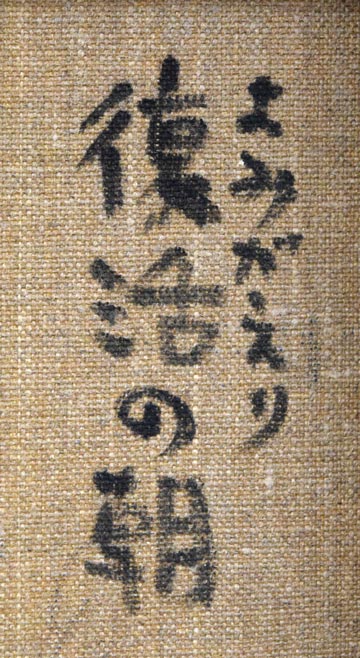 よみがえり
復活の朝